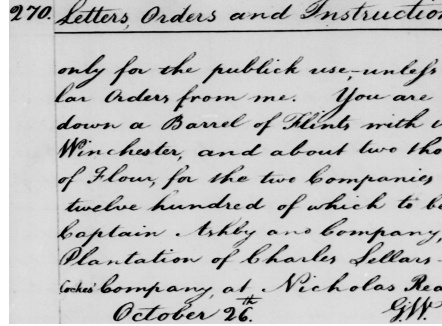 270. Letters, Orders and Instructio
only for the publick use, unless
lar Orders from me. You are
down a Barrel of Flints with
Winchester, and about two tho
of Flour, for the two Companies
twelve hundred of which to be
Captain Ashby and Company,
Plantation of Charles Sellars-
Cockes' Company, at Nicholas Rea
October 26.th G.W.